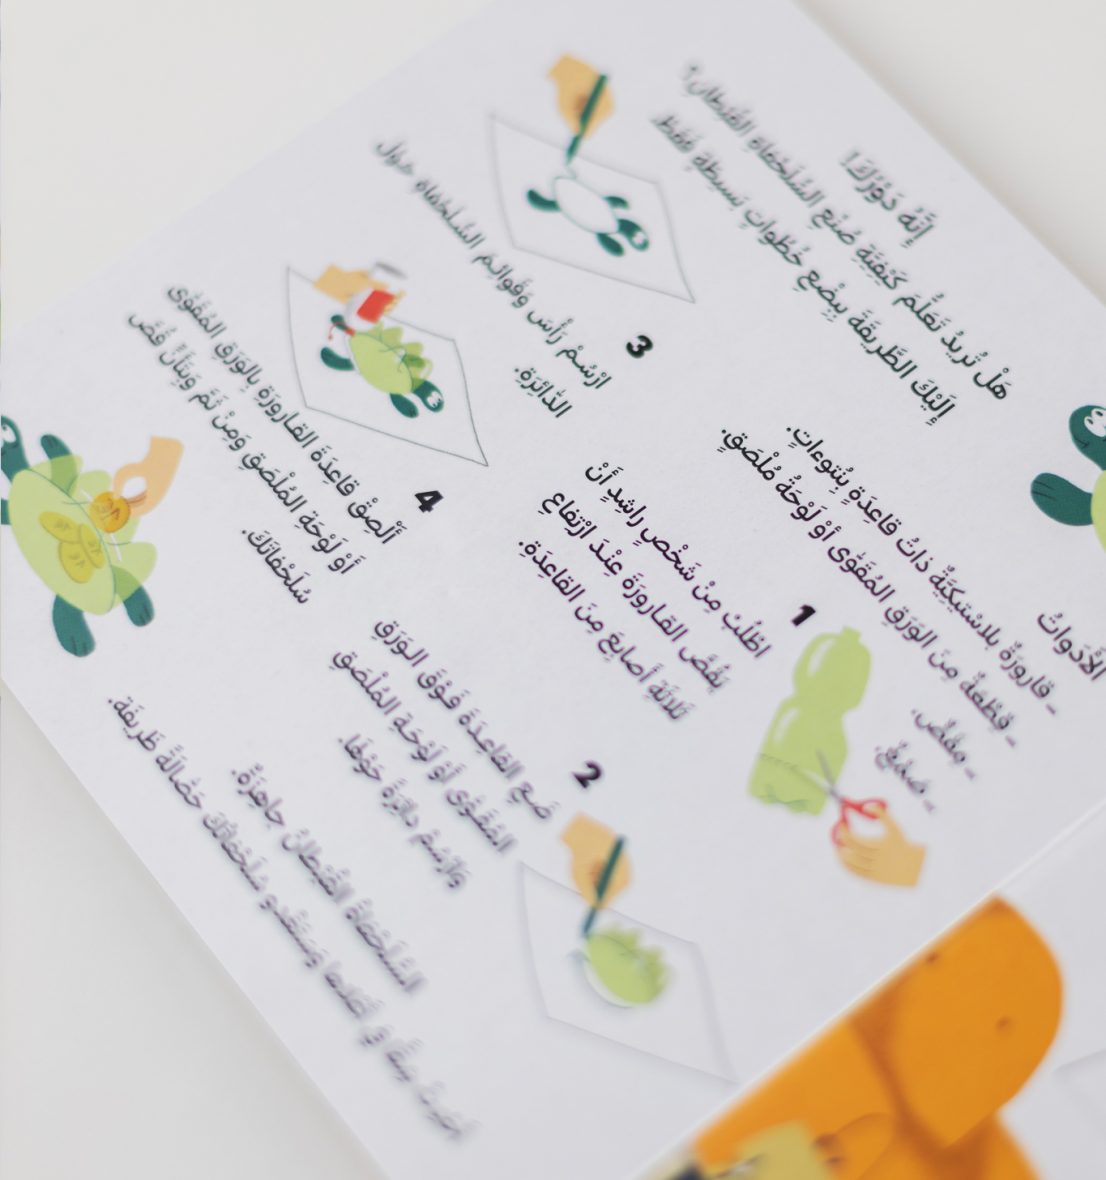 إِنَّهُ دَوْرُكَ!
هَلْ تُرِيدُ تَعَلُّمَ كَيْفِيَّةِ صُنْعِ السُّلَحْفَاةِ القُبْطَان؟
إِلَيْكَ الطَّرِيقَةَ بِبِضْعِ خُطُوَاتٍ بَسِيطَةٍ فَقَطْ.
الْأَدَواتُ
- قارورَةٌ بلاسْتيكِيَّةٌ ذاتُ قاعِدَةٍ بِنُتوءاتٍ.
- قِطْعَةٌ مِنَ الوَرَقِ المُقَوّى أَوْ لَوْحَةُ مُلْصَقٍ.
- مِقَصٌّ.
- صَمْغٌ.
1
اطْلُبْ مِنْ شَخْصٍ راشِدٍ أَنْ
يَقُصَّ القارورَةَ عِنْدَ ارْتِفاعِ
ثَلاثَةِ أَصابِعَ مِنَ القاعِدَةِ.
2
ضَعِ القاعِدَةَ فَوْقَ الوَرَقِ
المُقَوّى أَوْ لَوْحَةِ المُلْصَقِ
وَارْسُمْ دائِرَةً حَوْلَها.
3
ارْسُمْ رَأْسَ وَقَوائِمَ السُّلَحْفاةِ حَوْلَ
الدّائِرَةِ.
4
أَلْصِقْ قاعِدَةَ القارورَةِ بِالوَرَقِ المُقَوّى
أَوْ لَوْحَةِ المُلْصَقِ وَمِنْ ثَمَّ وَبِتَأَنٍّ قُصَّ
سُلَحْفاتَكَ.
السُّلَحْفاةُ القُبْطانُ جاهِزَةٌ.
وَسَتَغْدو سُلَحْفاتُكَ حَصّالَةً ظَريفَة.